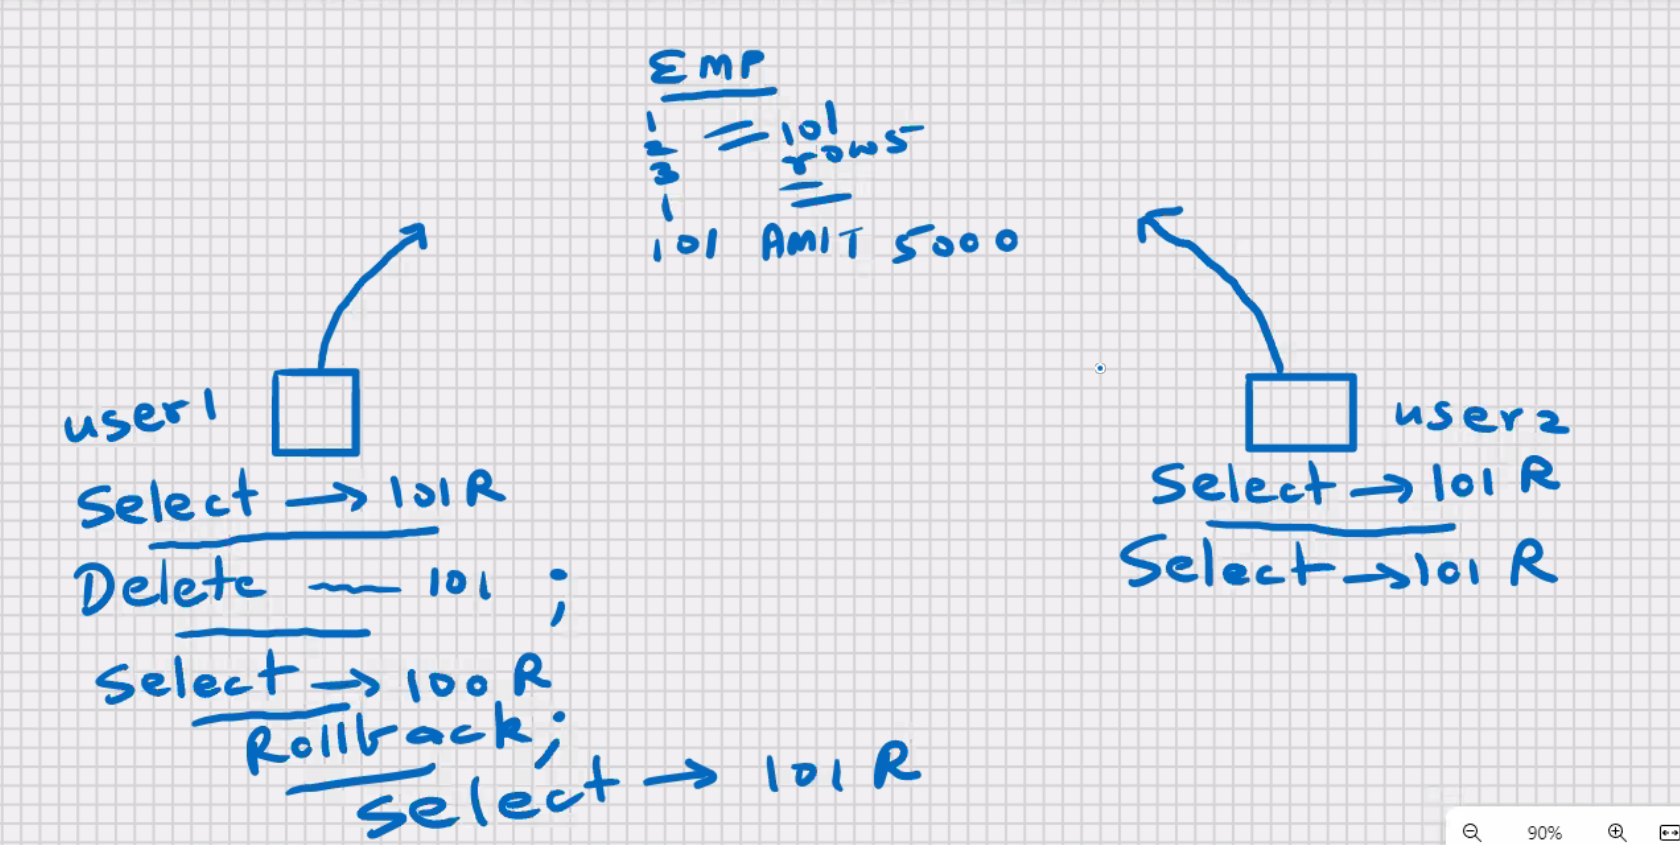 EMP
1
2
3
101 rows
1
101 AMIT 5000
user1
Select → 101 R
Delete — 101 ;
Select → 100 R
Rollback;
Select → 101 R
user2
Select → 101 R
Select → 101 R
90%